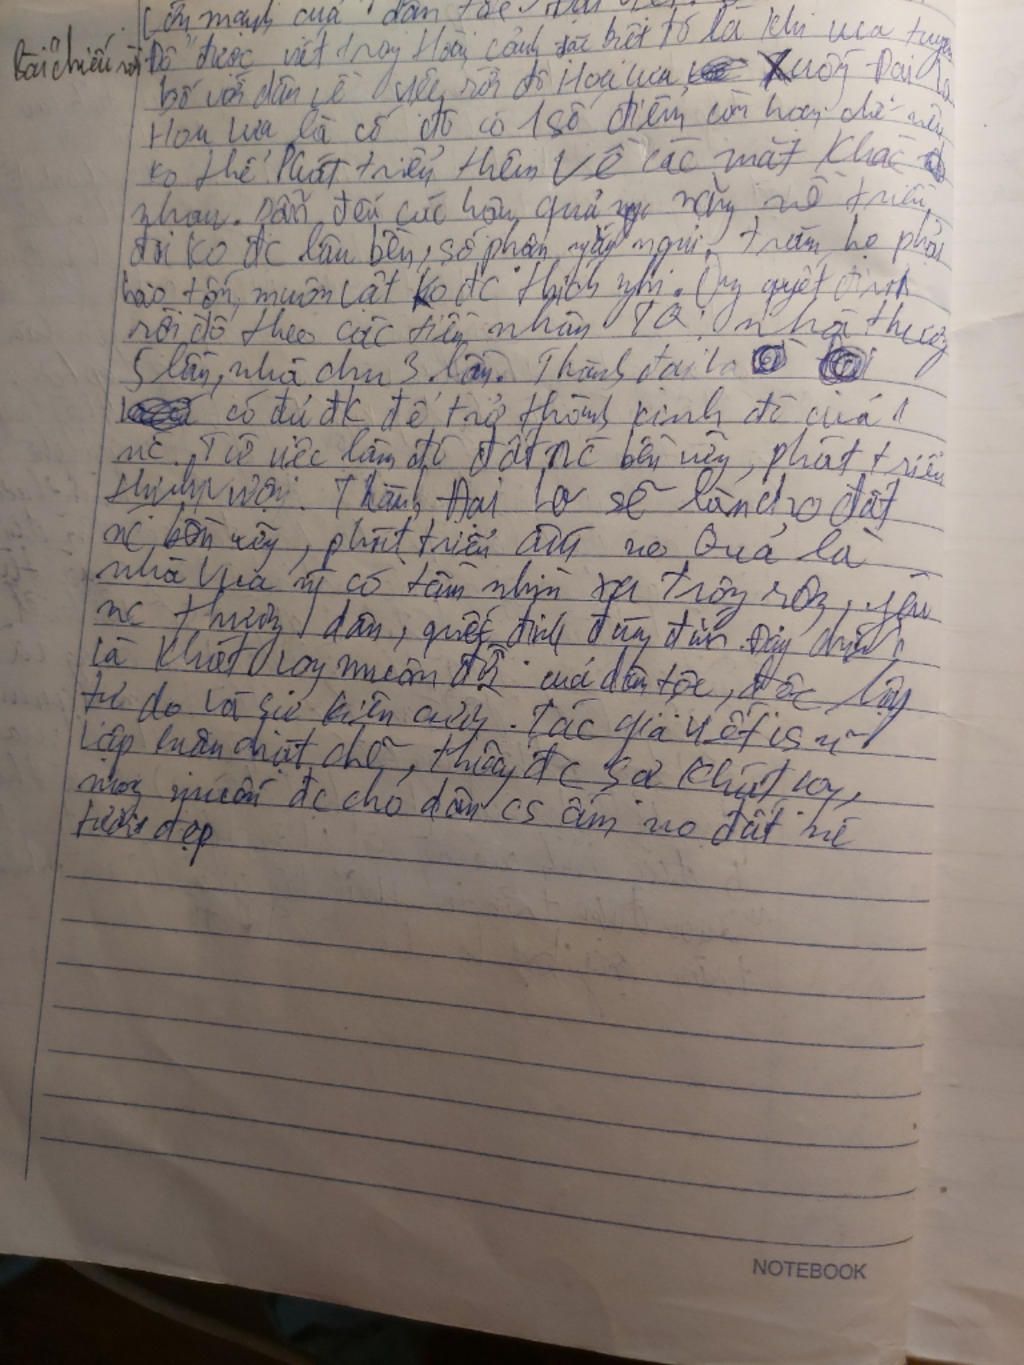 lớn mạnh của dân tộc Đại Việt.
Bài chiếu rời Đô" được viết trong Hoàn cảnh đặc biệt đó là khi vua tuyên
bố với dân về việc rời đô Hoa Lưa Xuống Đại La
Hoa Lưa là cố đô có 1 số điểm còn hạn chế nên
ko thể Phát triển thêm Về các mặt Khác
nhau. Dẫn đến các hậu quả nặng nề triều
đại ko đc lâu bền, số phận ngắn ngủi, trăm họ phải
hao tổn, muôn vật ko đc thích nghi. Ông quyết định
rời đô theo các tiền nhân TQ: nhà thương
5 lần, nhà chu 3 lần. Thành đại la
có đủ đk để trở thành kinh đô của 1
nc. Từ việc làm đó đất nc bền vững, phát triển
thịnh vượng. Thành Đại La sẽ làm cho đất
nc bền vững, phát triển ấm no Quả là
nhà Vua có tầm nhìn xa trông rộng, yêu
nc thương dân, quyết định đúng đắn. Đây chính
là Khát vọng muôn đời của dân tộc, độc lập
tự do và sự kiên cường. Tác giả
lập luận chặt chẽ, thấy đc sự khát vọng,
mong muốn đc cho dân cs ấm no đất nc
tươi đẹp
NOTEBOOK